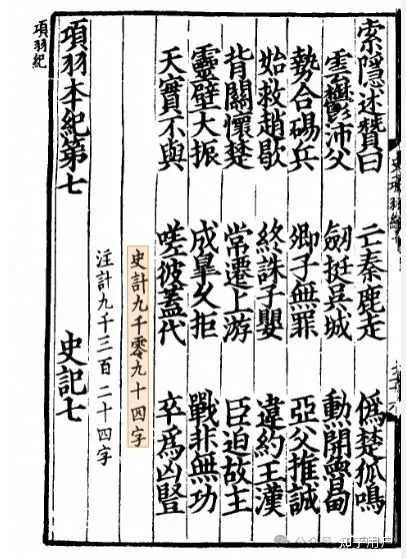 索隠述贊曰　亡秦鹿走　僞楚狐鳴
雲鬱沛父　劒挺吳城　勳開魯甸
勢合碭兵　卿子無罪　亞父推誠
始救趙歇　終誅子嬰　違約王漢
背關懷楚　常遷上游　臣迫故主
靈壁大振　成皐久拒　戰非無功
天實不與　嗟彼蓋代　卒爲凶豎
史計九千零九十四字
注計九千三百二十四字
項羽本紀第七　史記七
項羽紀
知乎用户